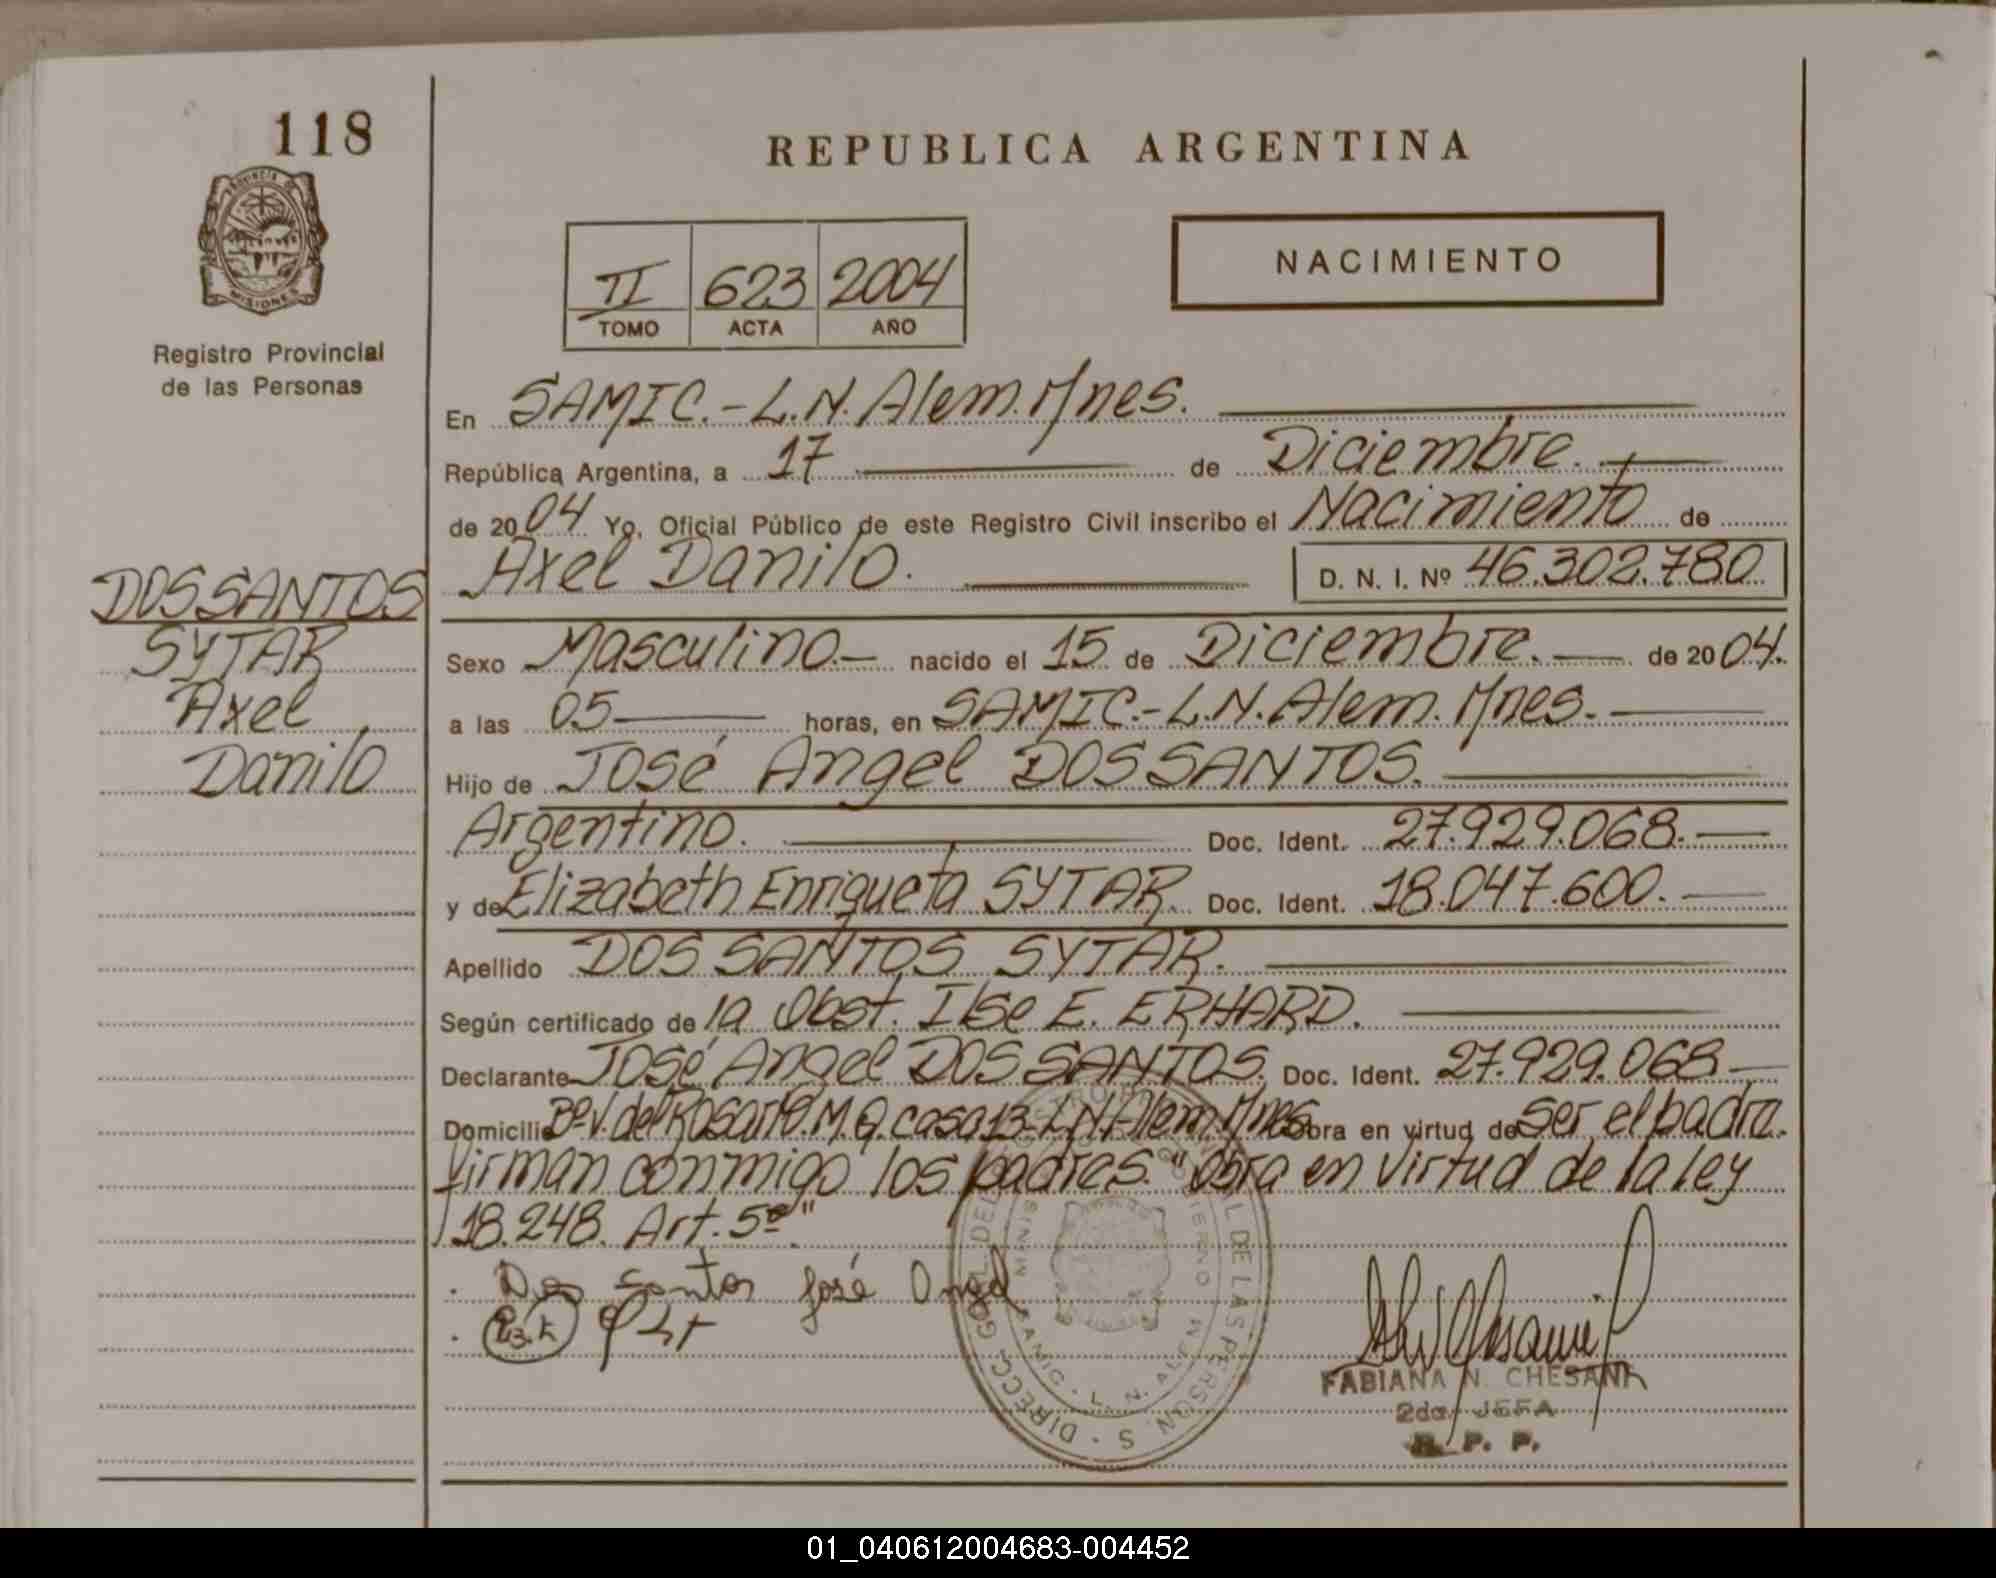 118
PROVINCIA DE
MISIONES
Registro Provincial
de las Personas
REPUBLICA ARGENTINA
II 623 2004
TOMO ACTA AÑO
NACIMIENTO
En SAMIC.-L.N.Alem.Mnes.
República Argentina, a 17 de Diciembre.
de 2004 Yo, Oficial Público de este Registro Civil inscribo el Nacimiento de
Axel Danilo. D. N. I. Nº 46.302.780
DOS SANTOS
SYTAR
Axel
Danilo
Sexo Masculino.- nacido el 15 de Diciembre. de 2004.
a las 05 horas, en SAMIC.-L.N.Alem. Mnes.
Hijo de José Angel DOS SANTOS.
Argentino. Doc. Ident. 27.929.068.
y de Elizabeth Enriqueta SYTAR. Doc. Ident. 18.047.600.
Apellido DOS SANTOS SYTAR.
Según certificado de la Obst. Ilse E. ERHARD.
Declarante José Angel DOS SANTOS. Doc. Ident. 27.929.068
Domicilio Bº V. del Rosario. M.Q. casa 13-L.N.Alem. Mnes obra en virtud de ser el padre.
firman conmigo los padres. "Obra en virtud de la ley
18.248. Art. 5º".
Dos santos José Angel
FABIANA N. CHESANI
2da. JEFA
R. P. P.
L. N. ALEM
01_040612004683-004452